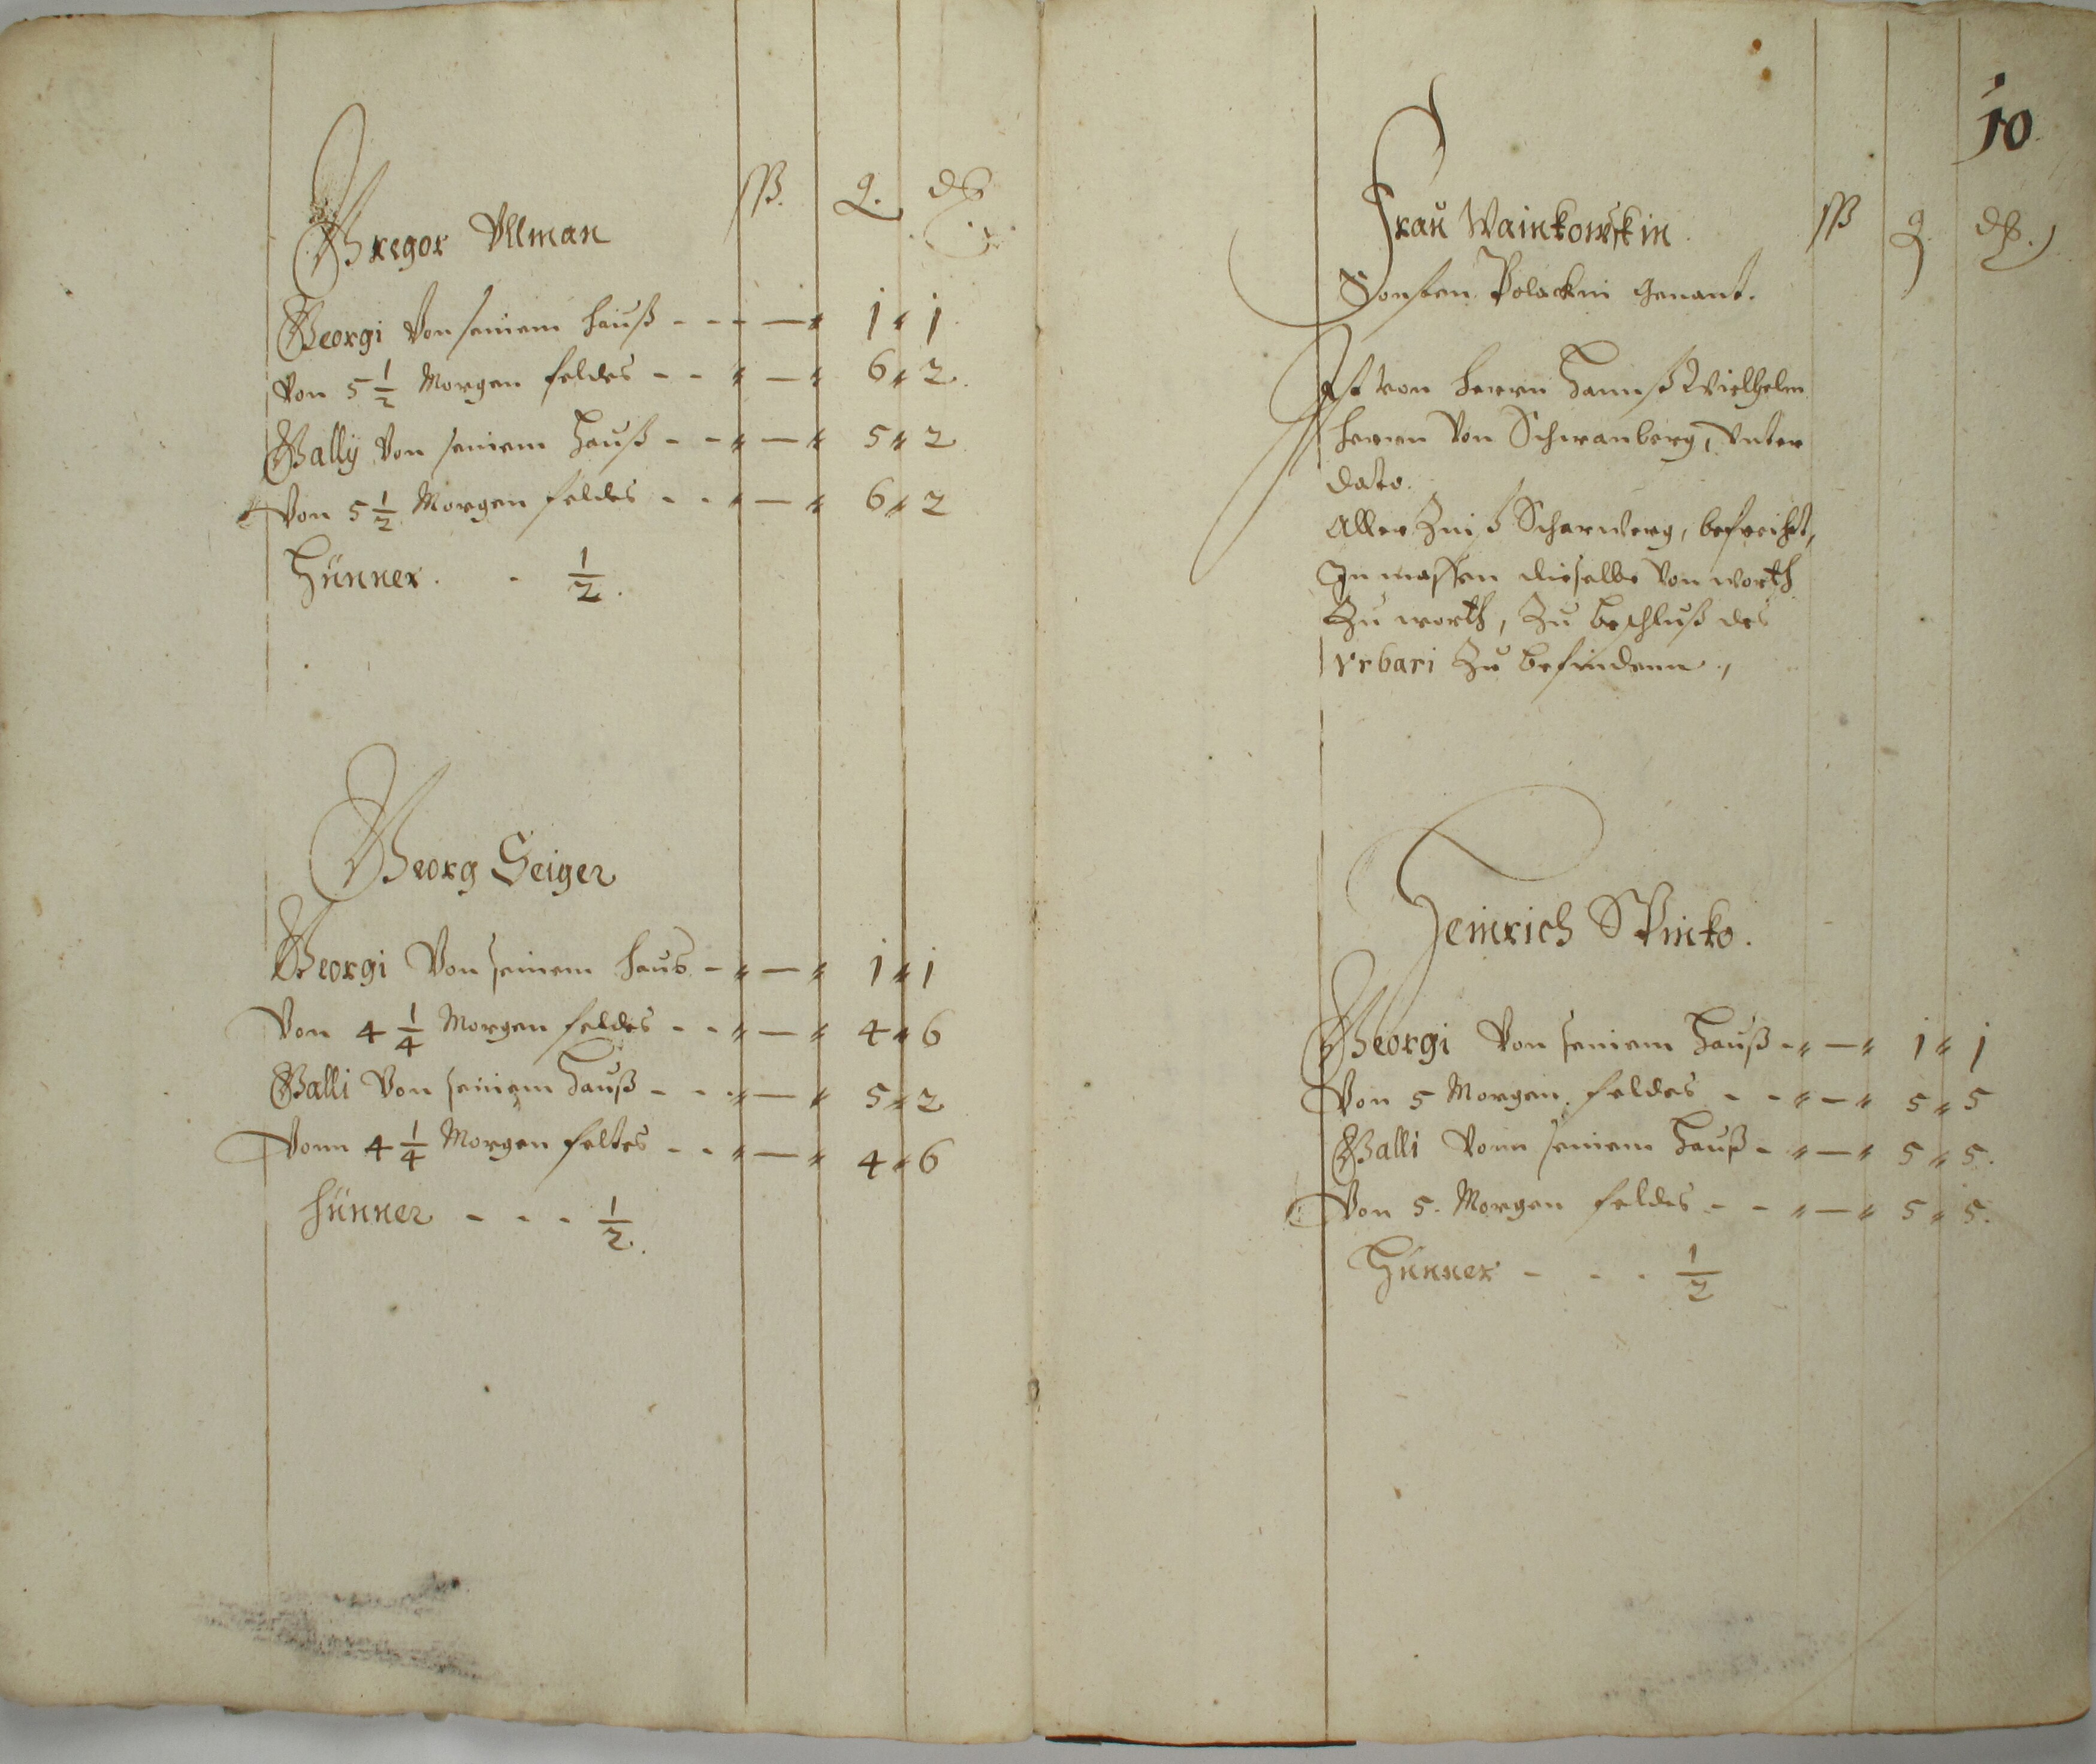 ßß. g. d
Gregor Ullman
Georgi Von seinem hauß - - - — " 1 " 1
Von 5 1/2 Morgen feldes - - " — " 6 " 2.
Gally Von seinem Hauß - - " — " 5 " 2
Von 5 1/2 Morgen feldes - - " — " 6 " 2
Hünner. - 1/2.
Georg Geiger
Georgi Von seinem haus - " — " 1 " 1
Von 4 1/4 Morgen feldes - - " — " 4 " 6
Galli Von seinem Hauß - - " — " 5 " 2
Vonn 4 1/4 Morgen feltes - - " — " 4 " 6
hünner - - - 1/2.
10
Frau Wainkowskin ßß g d
Sonsten Polackin genant.
Ist von herrn Hannß Wielhelm
herrn Von Schwanberg, Unter
dato.
Aller Zinß Scharwerg, befreiht,
In massen dieselbe Von worth
Zu worth, Zu beschluß des
Vrbari Zu befindenn.,
Heinrich
Georgi Von seinem Hauß - " — " 1 " 1
Von 5 Morgen feldes - - " — " 5 " 5
Galli Vonn seinem Hauß - " — " 5 " 5.
Von 5. Morgen feldes - - " — " 5 " 5.
Hünner - - - 1/2